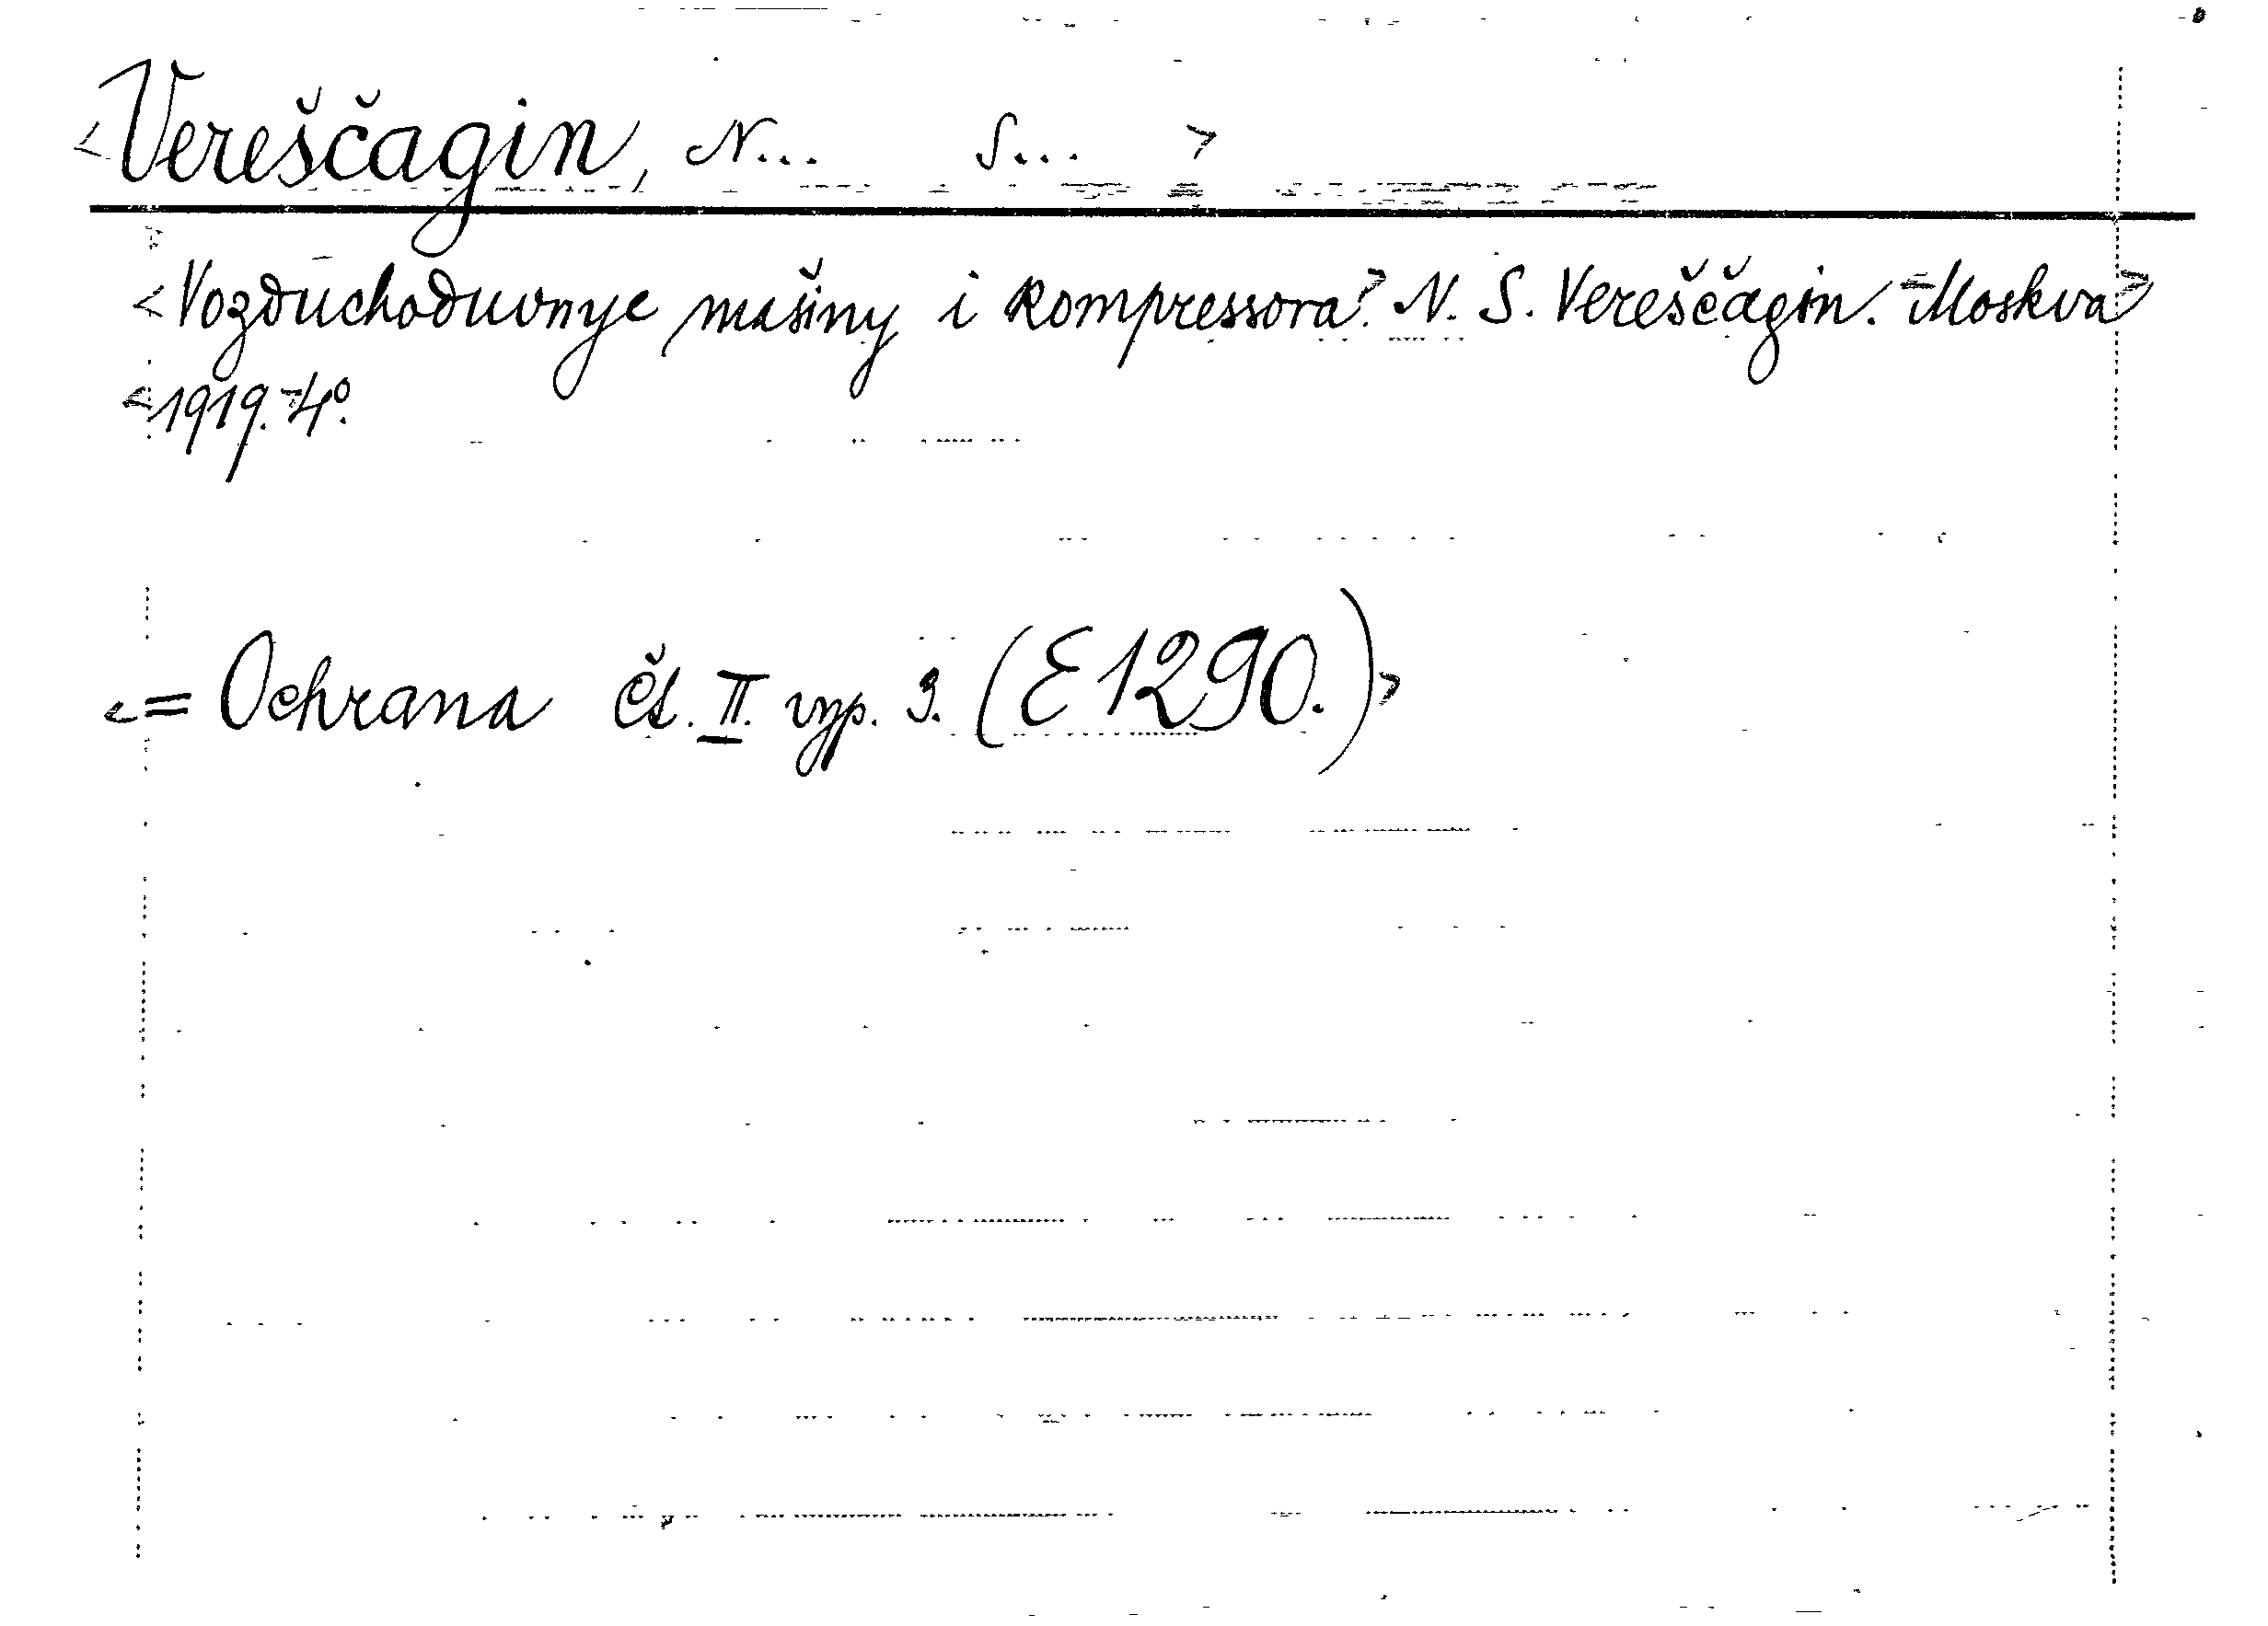 <Vereščagin, N... S... >
<Vozduchoduvnye mašiny i kompressora? N. S. Vereščagin. - Moskva>
<1919. - 4º.
<= Ochrana čt. II. vyp. 3. (E 1290.)>